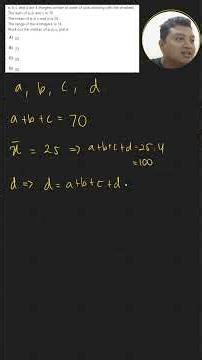 a, b, c and d are 4 integers written in order of size, starting with the smallest.
The sum of a, b and c is 70
The mean of a, b, c and d is 25
The range of the 4 integers is 14
Work out the median of a, b, c and d.
A)
B)
C)
D)
a, b, c, d
a+b+c = 70
x̄ = 25 => a+b+c+d = 25.4
=100
d => d = a+b+c+d -